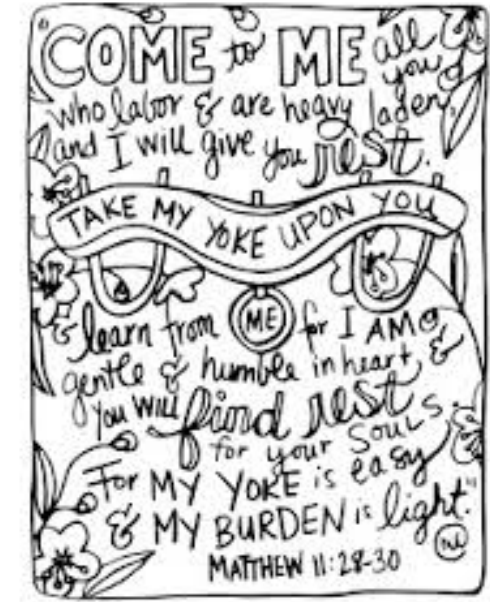 "COME to ME all
you
who labor & are heavy laden,
and I will give you rest.
TAKE MY YOKE UPON YOU
& learn from ME for I AM
gentle & humble in heart, &
you will find rest
for your SOULS.
For MY YOKE is easy
& MY BURDEN is light."
MATTHEW 11:28-30